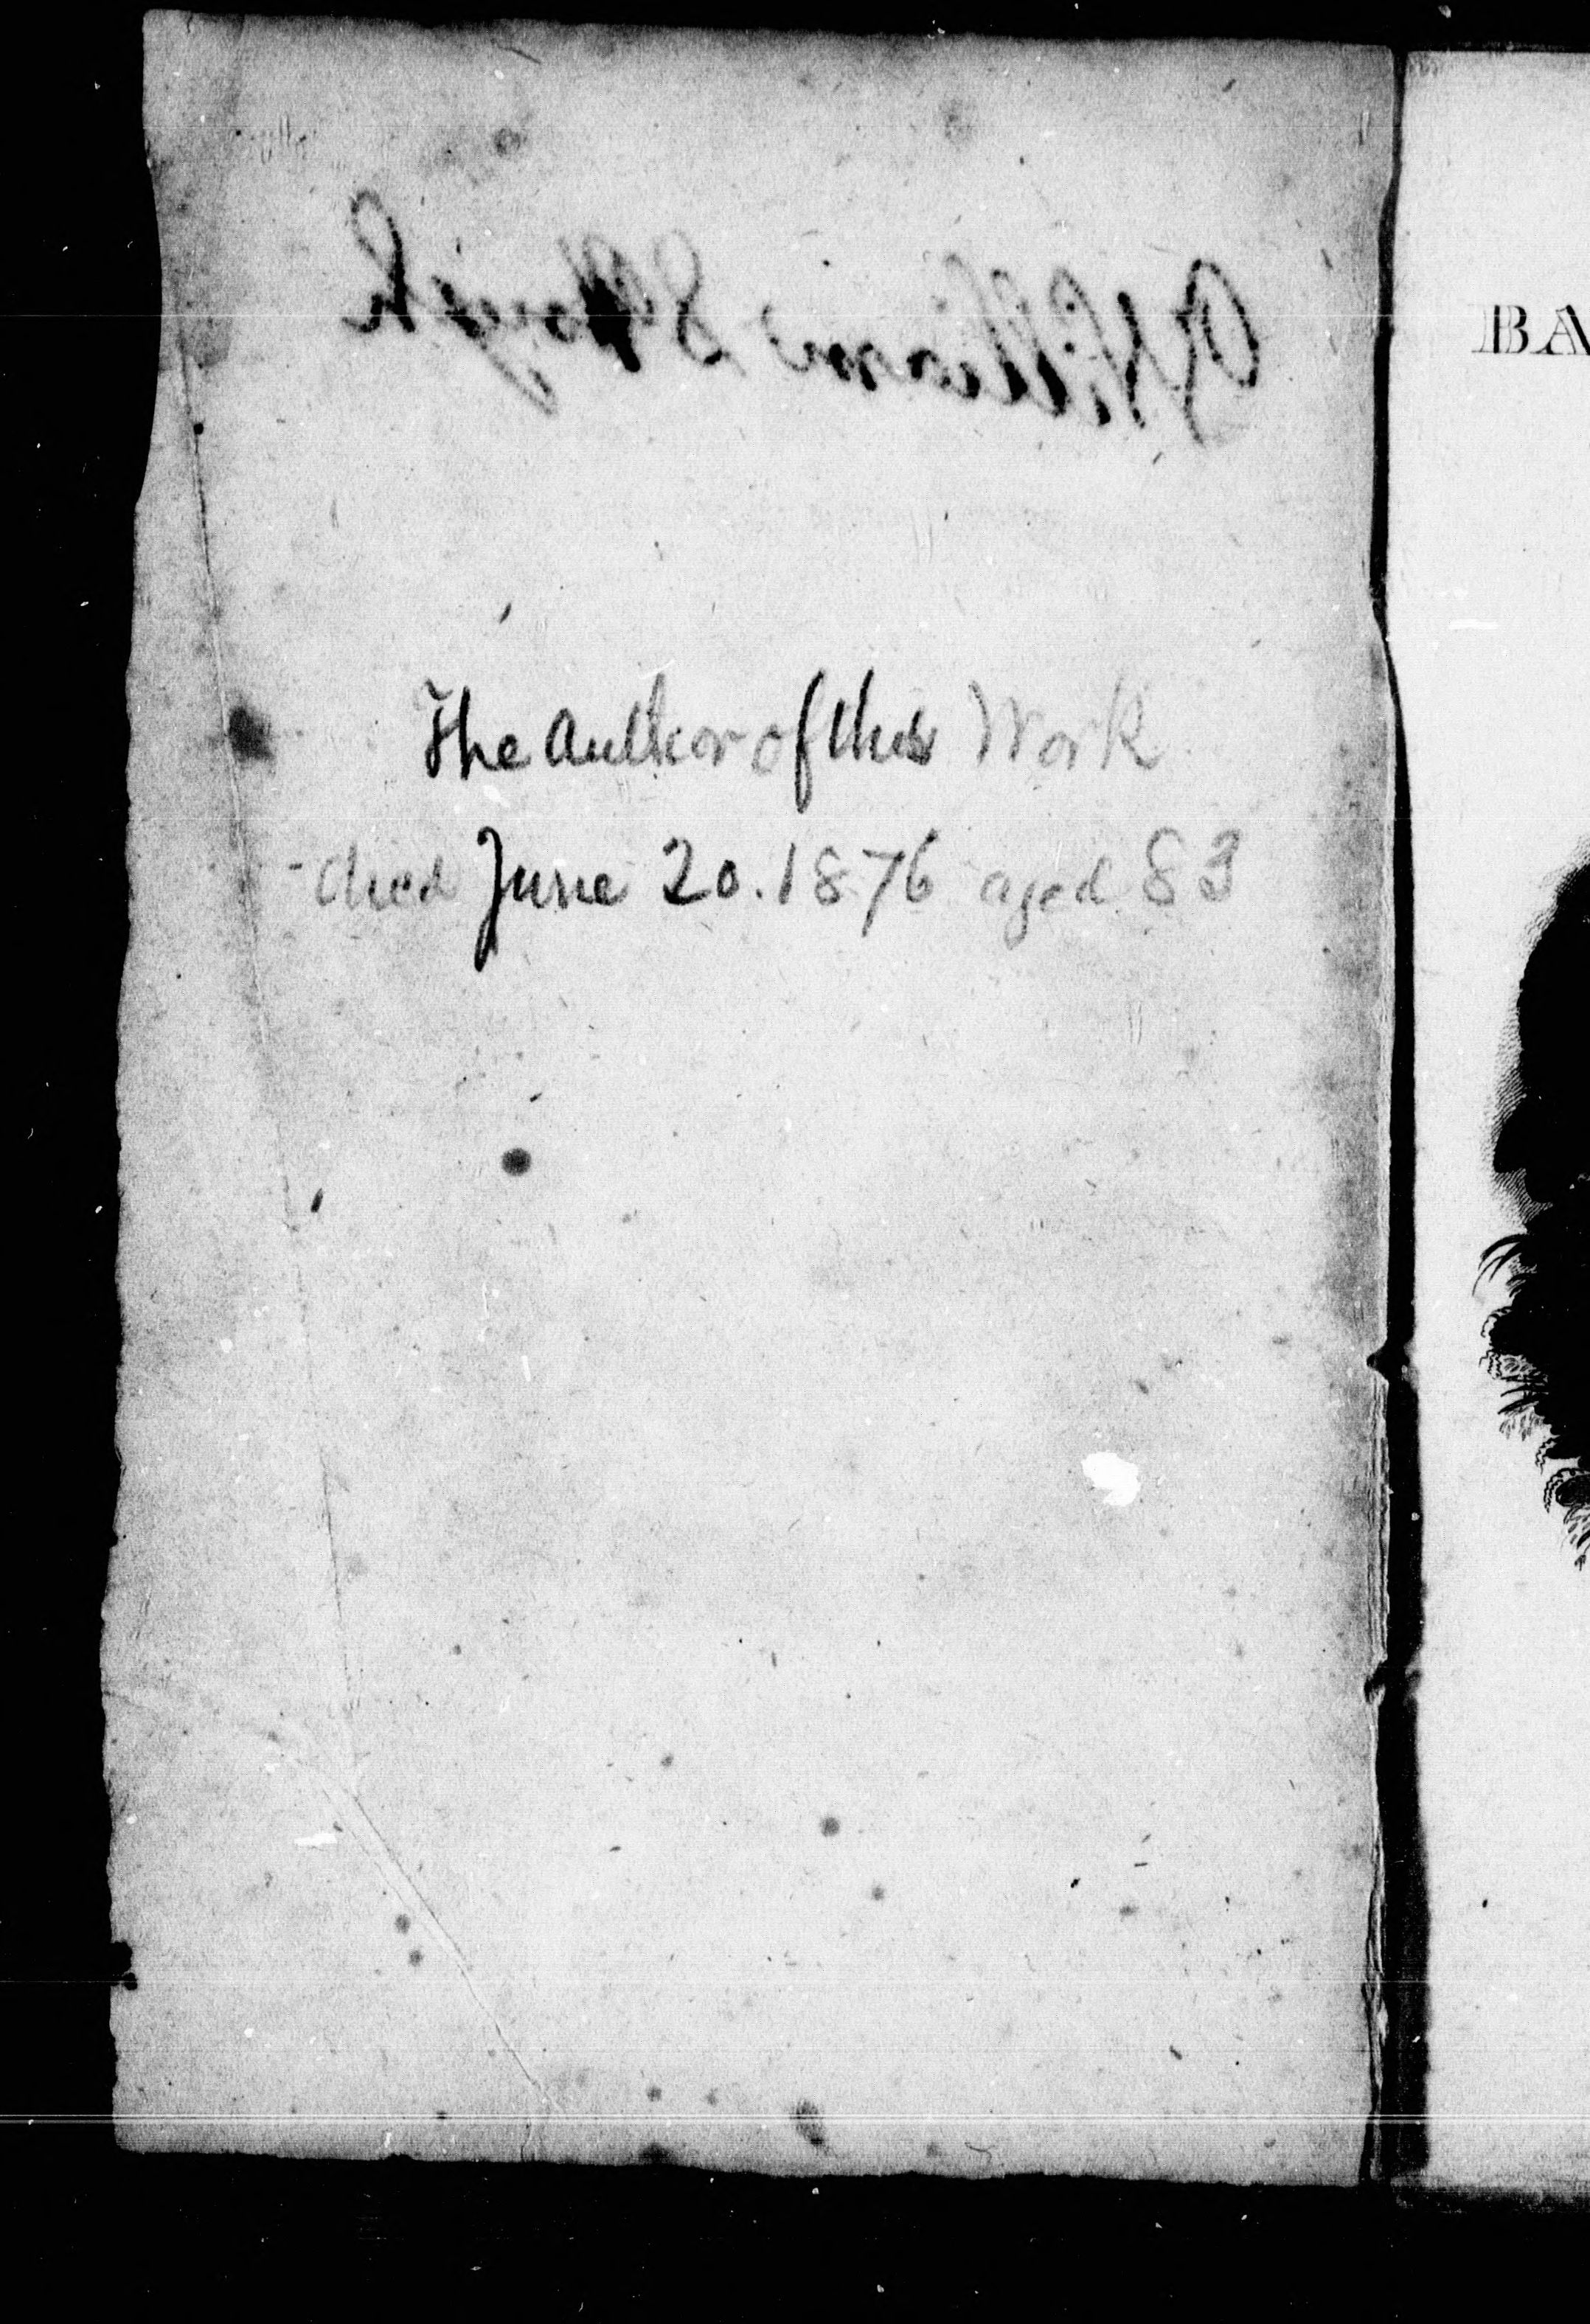 William S Hough
The Author of this Work
- died June 20. 1876 aged 83
BA